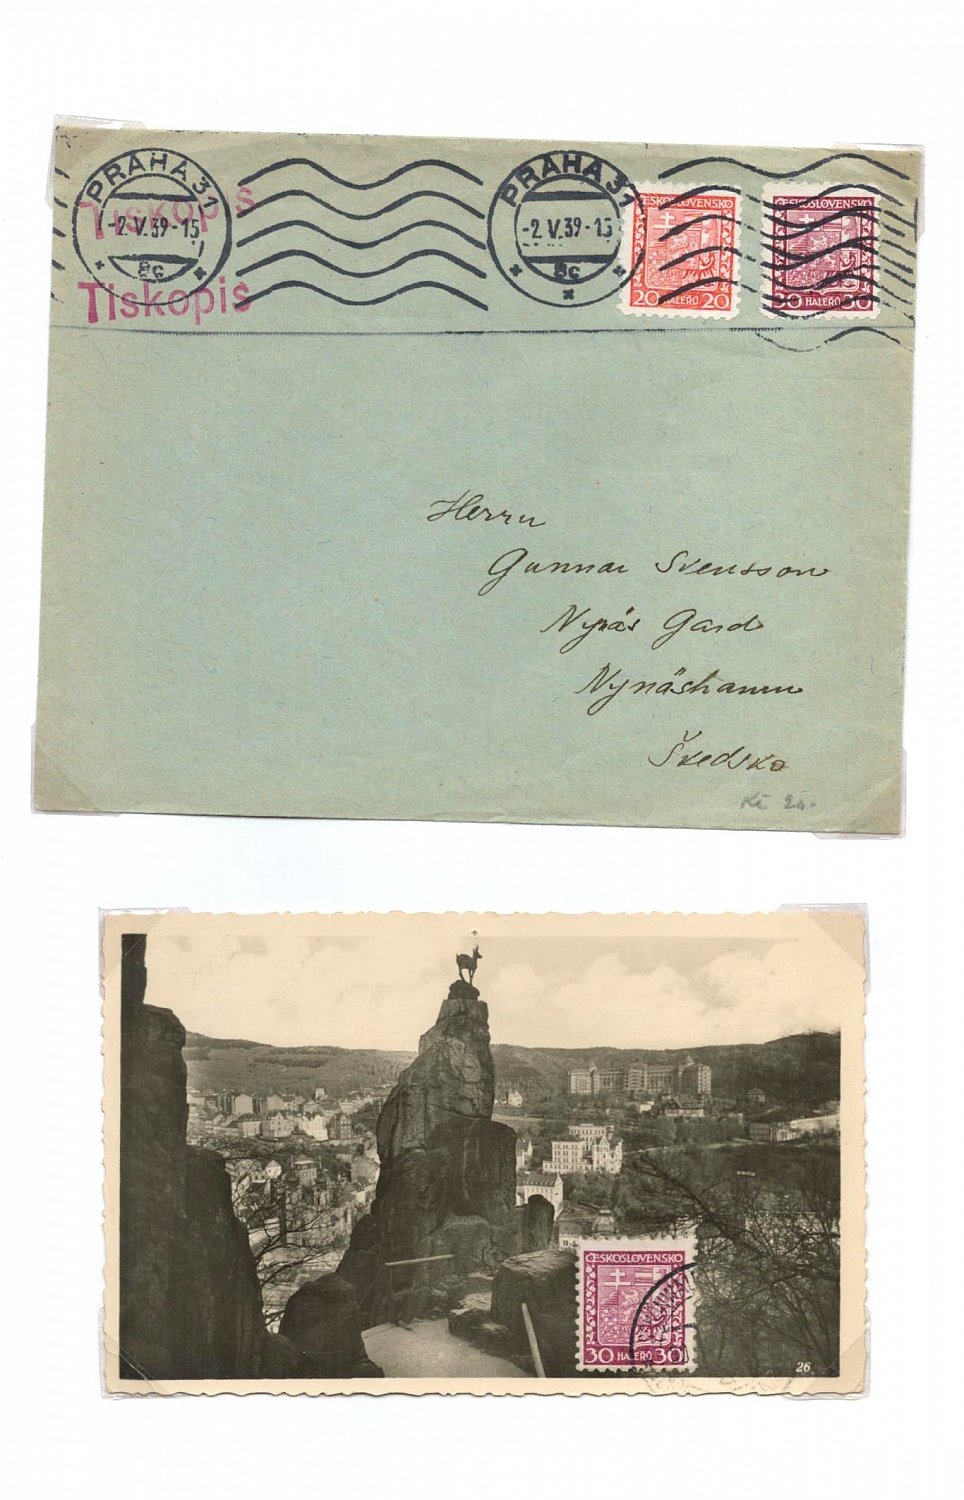 PRAHA 31
-2.V.39-15
8c
Tiskopis
Tiskopis
PRAHA 31
-2.V.39-15
8c
ČESKOSLOVENSKO
20 HALÉŘŮ 20
ČESKOSLOVENSKO
30 HALÉŘŮ 30
Herrn
Gunnar Svensson
Nynäs Gard
Nynäshamn
Švedsko
Kč
ČESKOSLOVENSKO
30 HALÉŘŮ 30
26